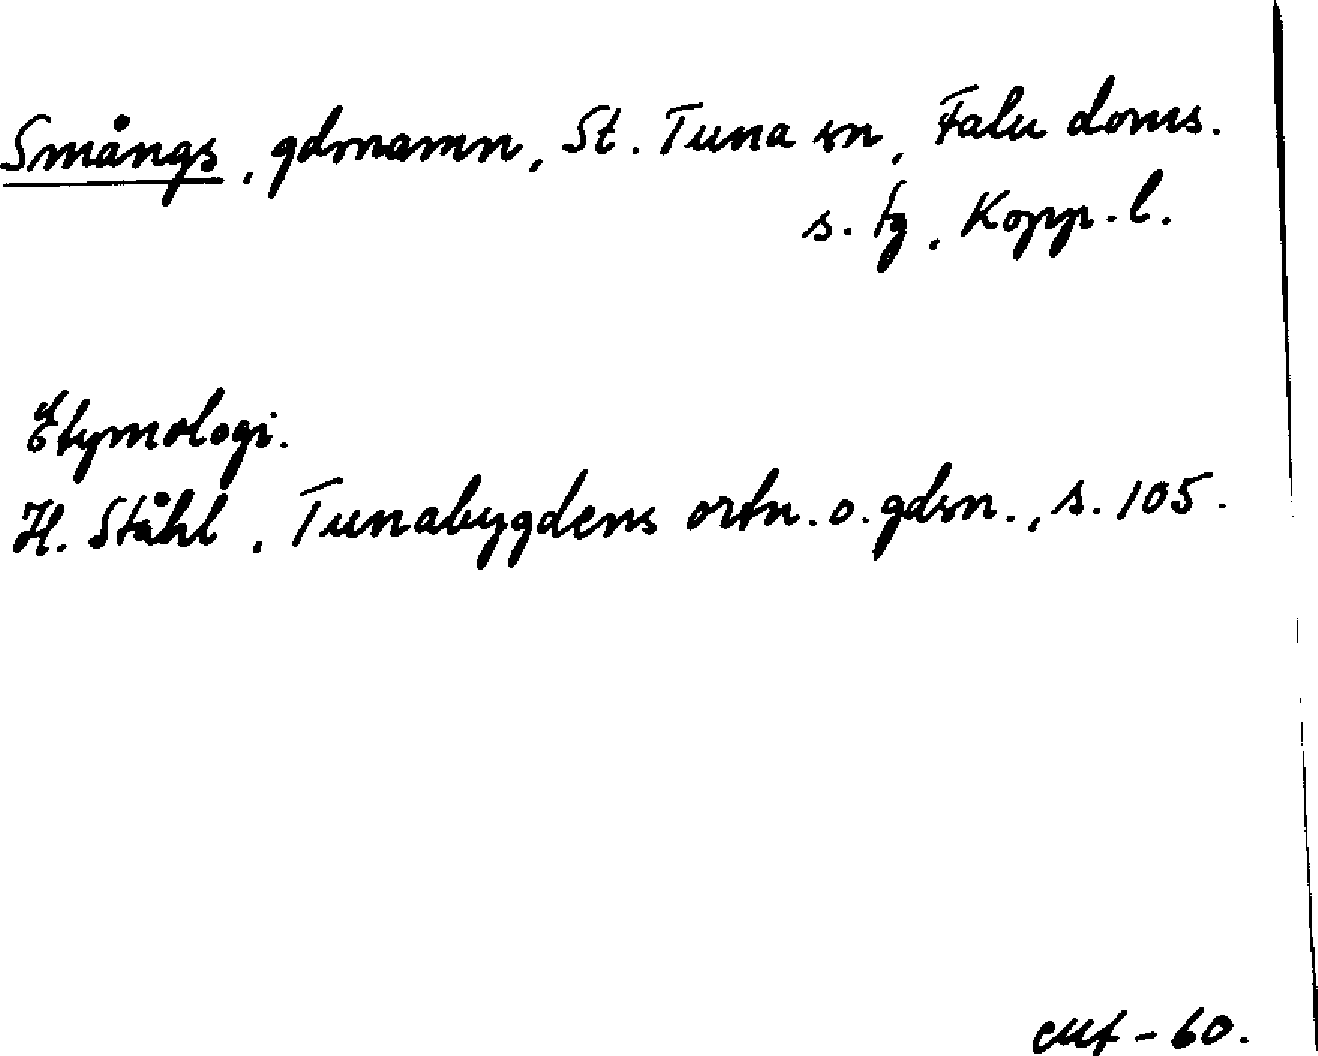 Smångs, gdrnamn, St. Tuna sn, Falu doms.
s. tg, Kopp. l.
Etymologi.
H. Ståhl, Tunabygdens ortn. o. gdsn., s. 105.
-60.